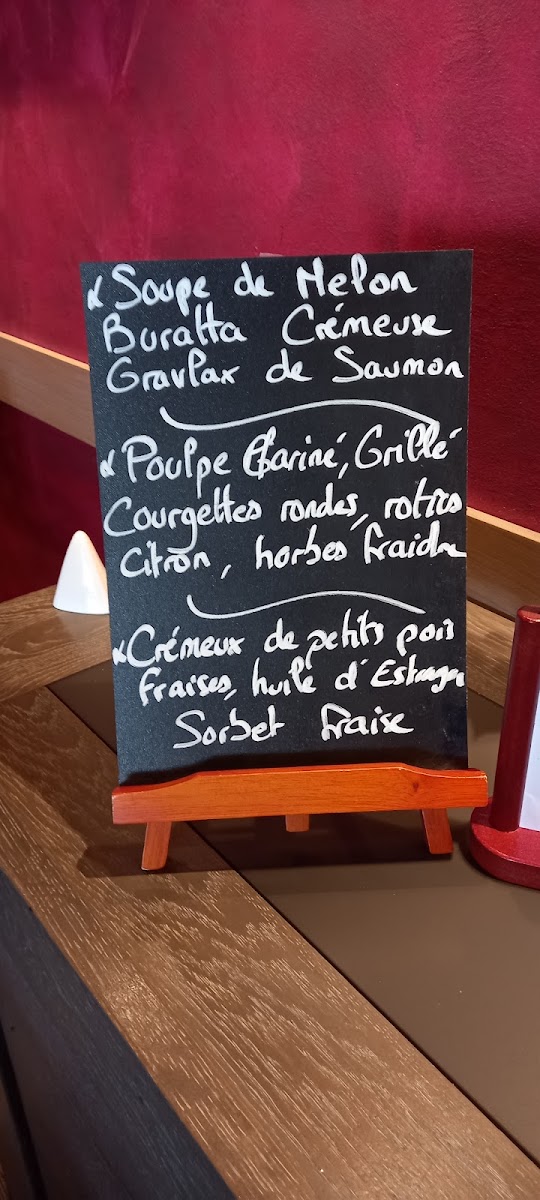 Soupe de Melon
Buratta Crémeuse
Gravlax de Saumon
Poulpe Mariné, Grillé
Courgettes rondes, roties
Citron, herbes fraiche
Crémeux de petits pois
fraises, huile d'Estragon
Sorbet fraise